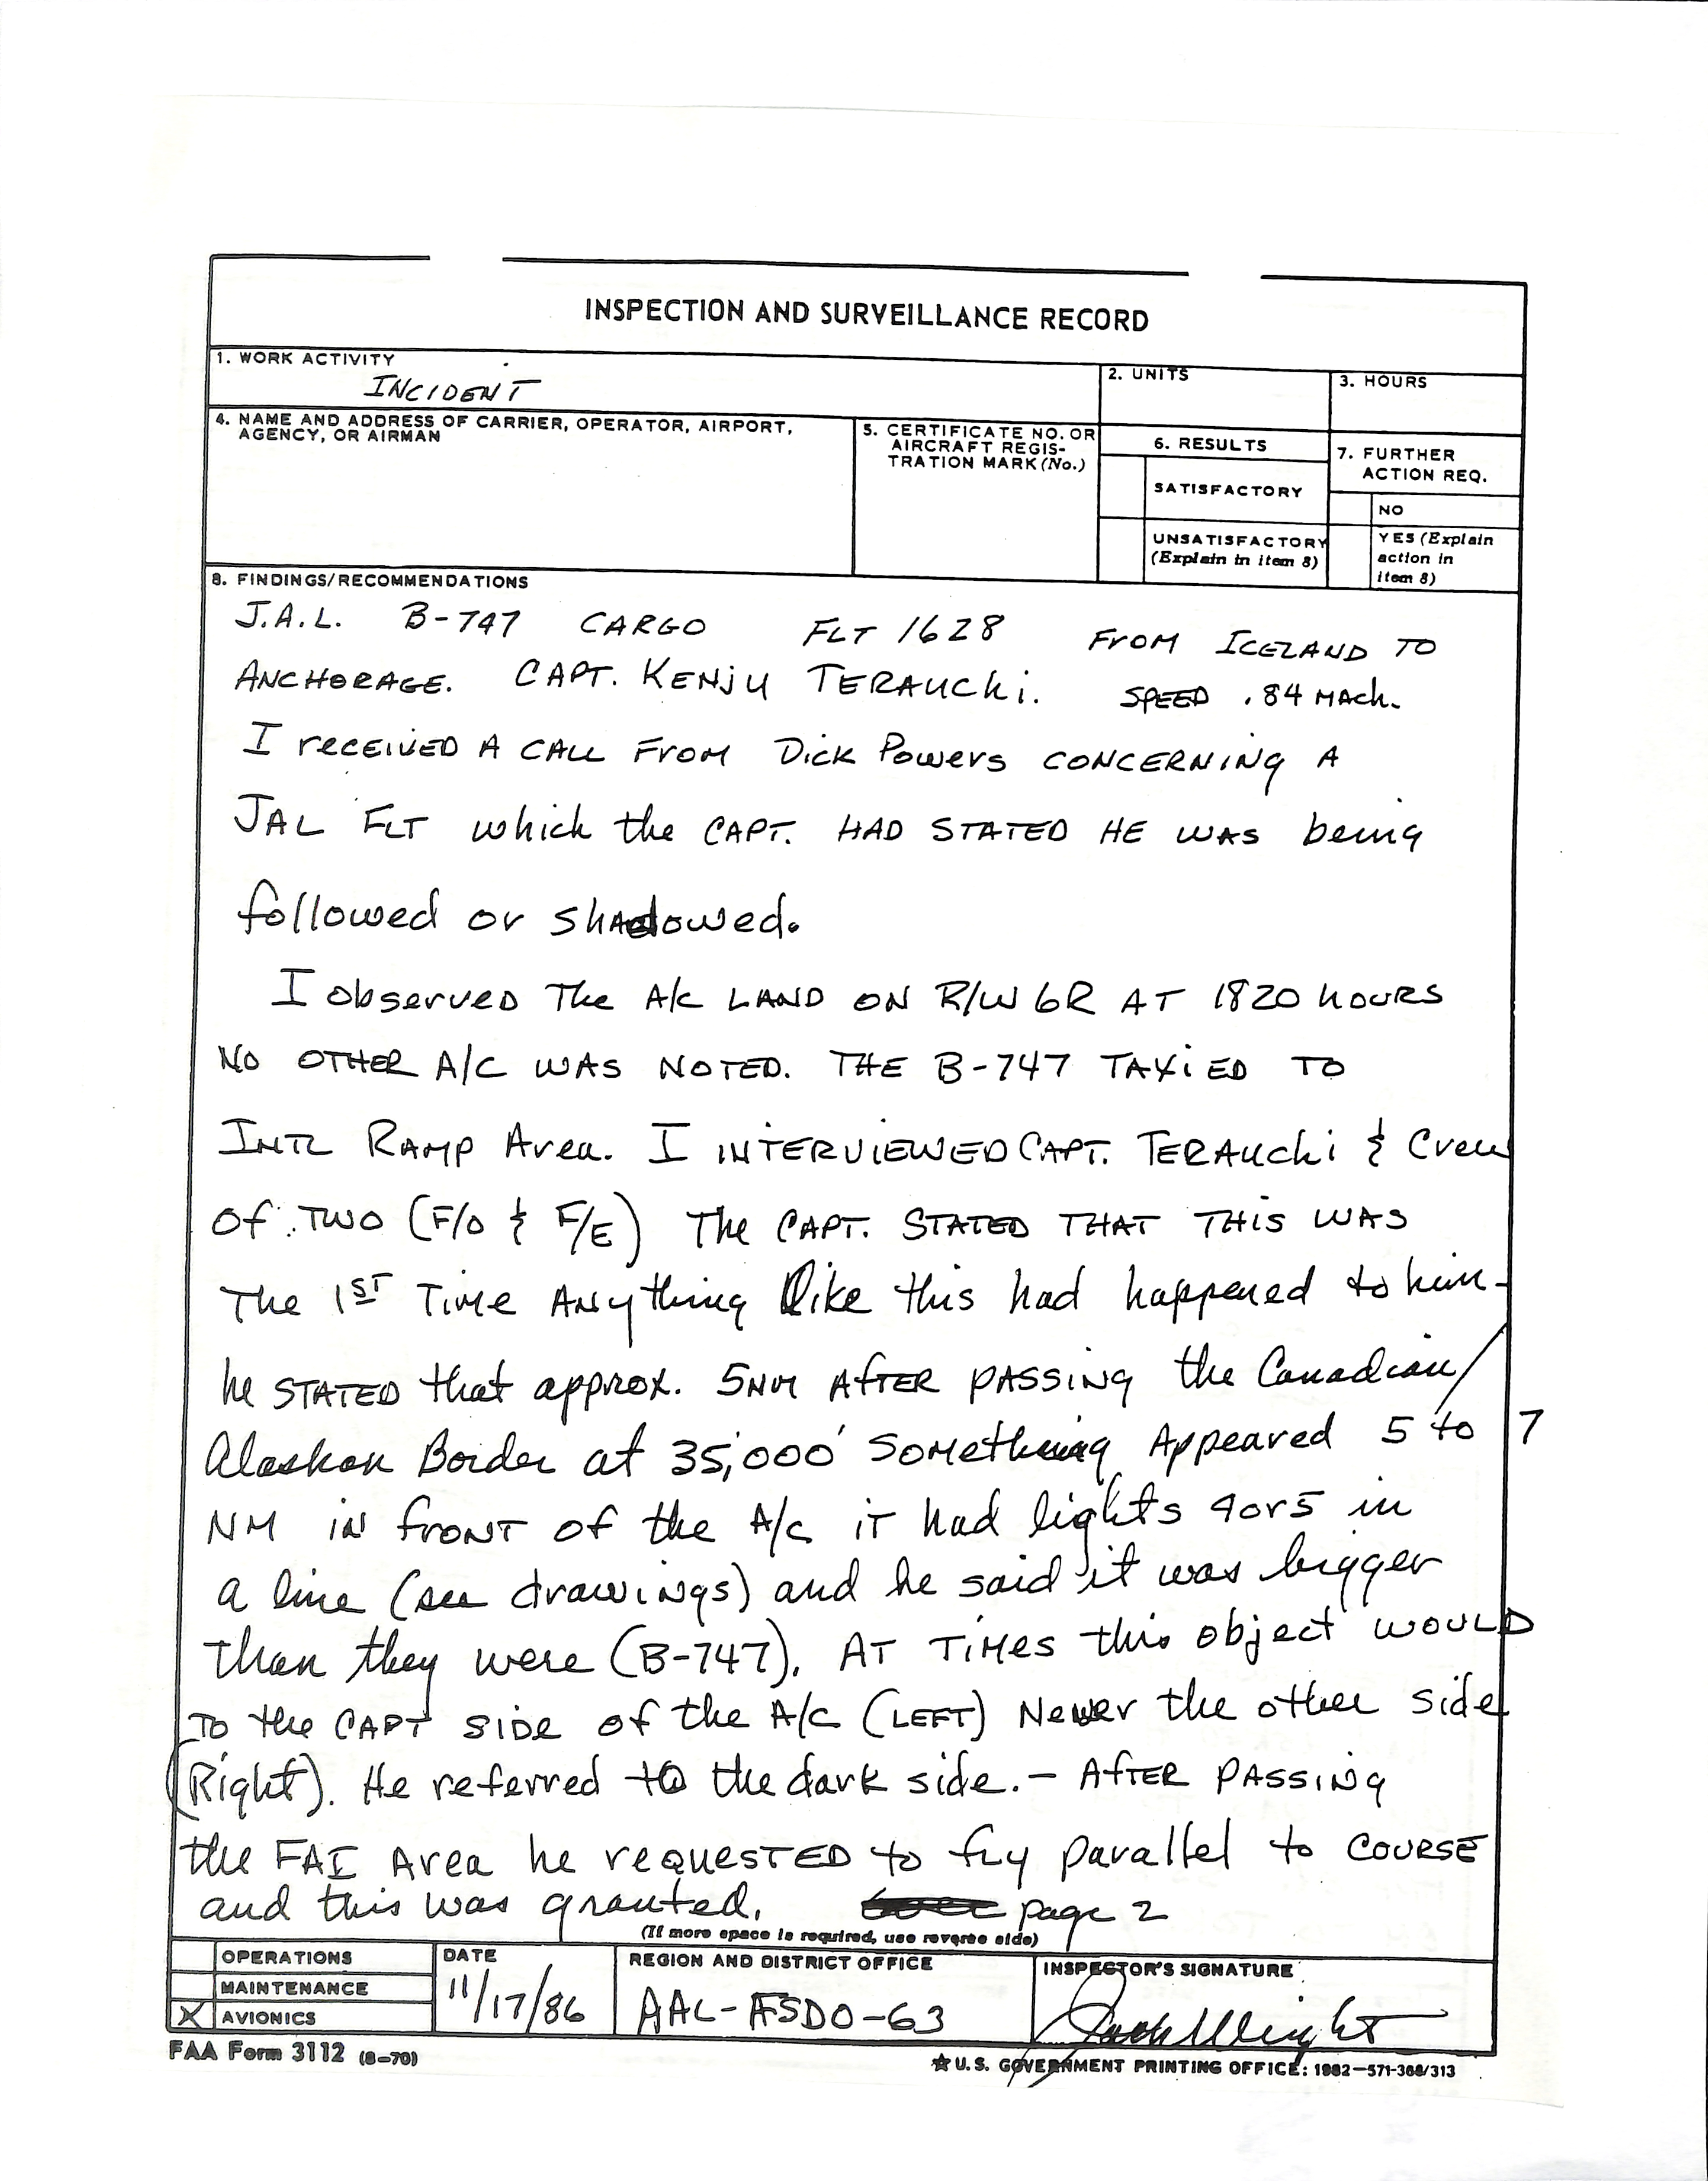 INSPECTION AND SURVEILLANCE RECORD
1. WORK ACTIVITY
INCIDENT
2. UNITS
3. HOURS
4. NAME AND ADDRESS OF CARRIER, OPERATOR, AIRPORT,
AGENCY, OR AIRMAN
5. CERTIFICATE NO. OR
AIRCRAFT REGIS-
TRATION MARK (No.)
6. RESULTS
SATISFACTORY
UNSATISFACTORY
(Explain in item 8)
7. FURTHER
ACTION REQ.
NO
YES (Explain
action in
item 8)
8. FINDINGS/RECOMMENDATIONS
J.A.L. B-747 CARGO FLT 1628 FROM ICELAND TO
ANCHORAGE. CAPT. KENJU TERAUCHi. SPEED .84 MACH.
I RECEIVED A CALL FROM Dick Powers CONCERNING A
JAL FLT which the CAPT. HAD STATED HE WAS being
followed or shadowed.
I observed The A/C LAND ON R/W 6R AT 1820 HOURS
NO OTHER A/C WAS NOTED. THE B-747 TAXIED TO
INTL RAMP Area. I INTERVIEWED CAPT. TERAUCHi & Crew
of TWO (F/O & F/E) The CAPT. STATED THAT THIS WAS
The 1ST Time Anything like this had happened to him-
he STATED that approx. 5NM AFTER PASSING the Canadian/
Alaskan Border at 35,000' SOMETHING Appeared 5 to 7
NM in front of the A/C it had lights 4or5 in
a line (see drawings) and he said it was bigger
than they were (B-747). AT TIMES this object WOULD
TO the CAPT SIDE of the A/C (LEFT) Never the other side
(Right). He referred to the dark side. - AFTER PASSING
the FAI Area he requested to fly parallel to COURSE
and this was granted. page 2
(If more space is required, use reverse side)
OPERATIONS
MAINTENANCE
X AVIONICS
DATE
11/17/86
REGION AND DISTRICT OFFICE
AAL-FSDO-63
INSPECTOR'S SIGNATURE
Jack Wright
FAA Form 3112 (8-70)
☆ U.S. GOVERNMENT PRINTING OFFICE: 1982-571-368/313